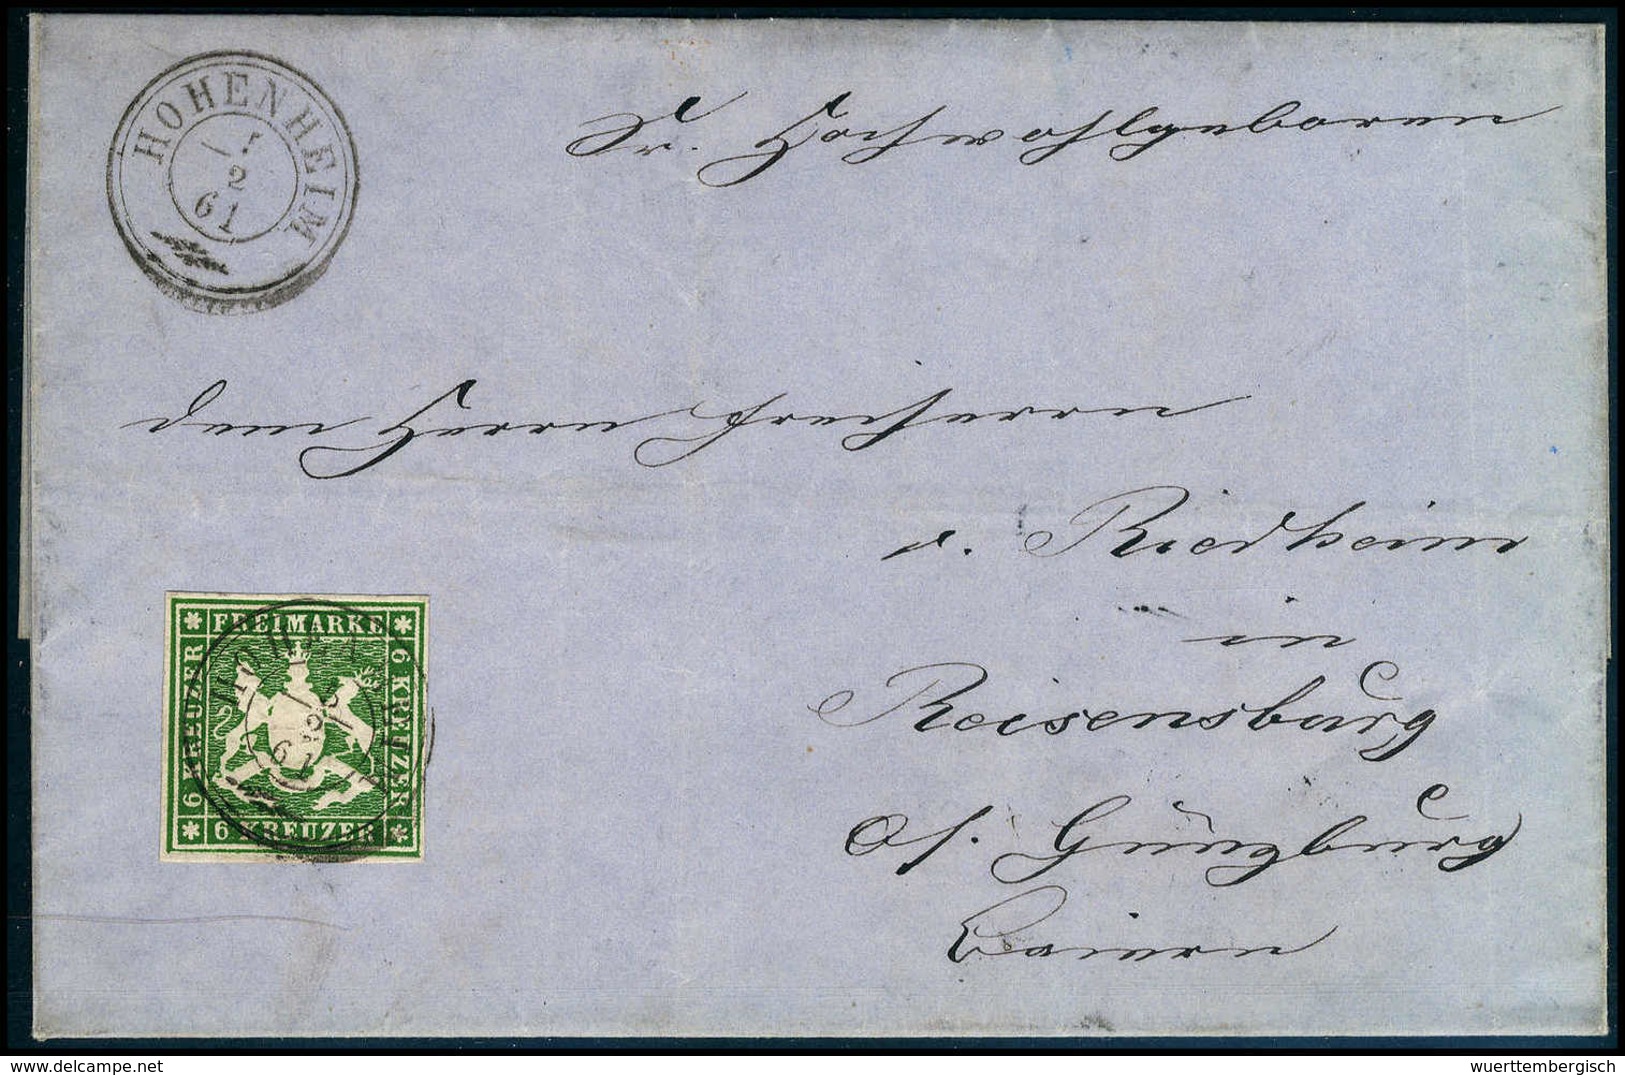 HOHENHEIM
2
61
Sr. Hochwohlgeboren
dem Herrn Freiherrn
v. Riedheim
in
Reisensburg
a/. Günzburg
Baiern
FREIMARKE
6 KREUZER
6 KREUZER
6 KREUZER
HOHENHEIM
2
61
www.delcampe.net
wuerttembergisch